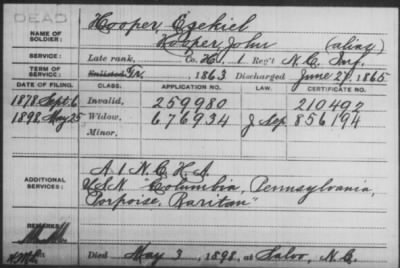 DEAD
Hooper Ezekiel
NAME OF SOLDIER: Hooper, John (alias)
SERVICE: Late rank, Co. H, 1 Reg't N.C. Inf.
TERM OF SERVICE: Enlisted , 1863 Discharged June 27, 1865
DATE OF FILING. CLASS. APPLICATION NO. LAW. CERTIFICATE NO.
1878 Sept. 6 Invalid, 259980 210492
1898, May 25 Widow, 676934 J Sep 856194
Minor.
A 1 N.C. H.A.
ADDITIONAL SERVICES: U.S.N. "Columbia, Pennsylvania,
Porpoise, Raritan"
REMARKS:
Died May 3, 1898, at Salvo, N.C.